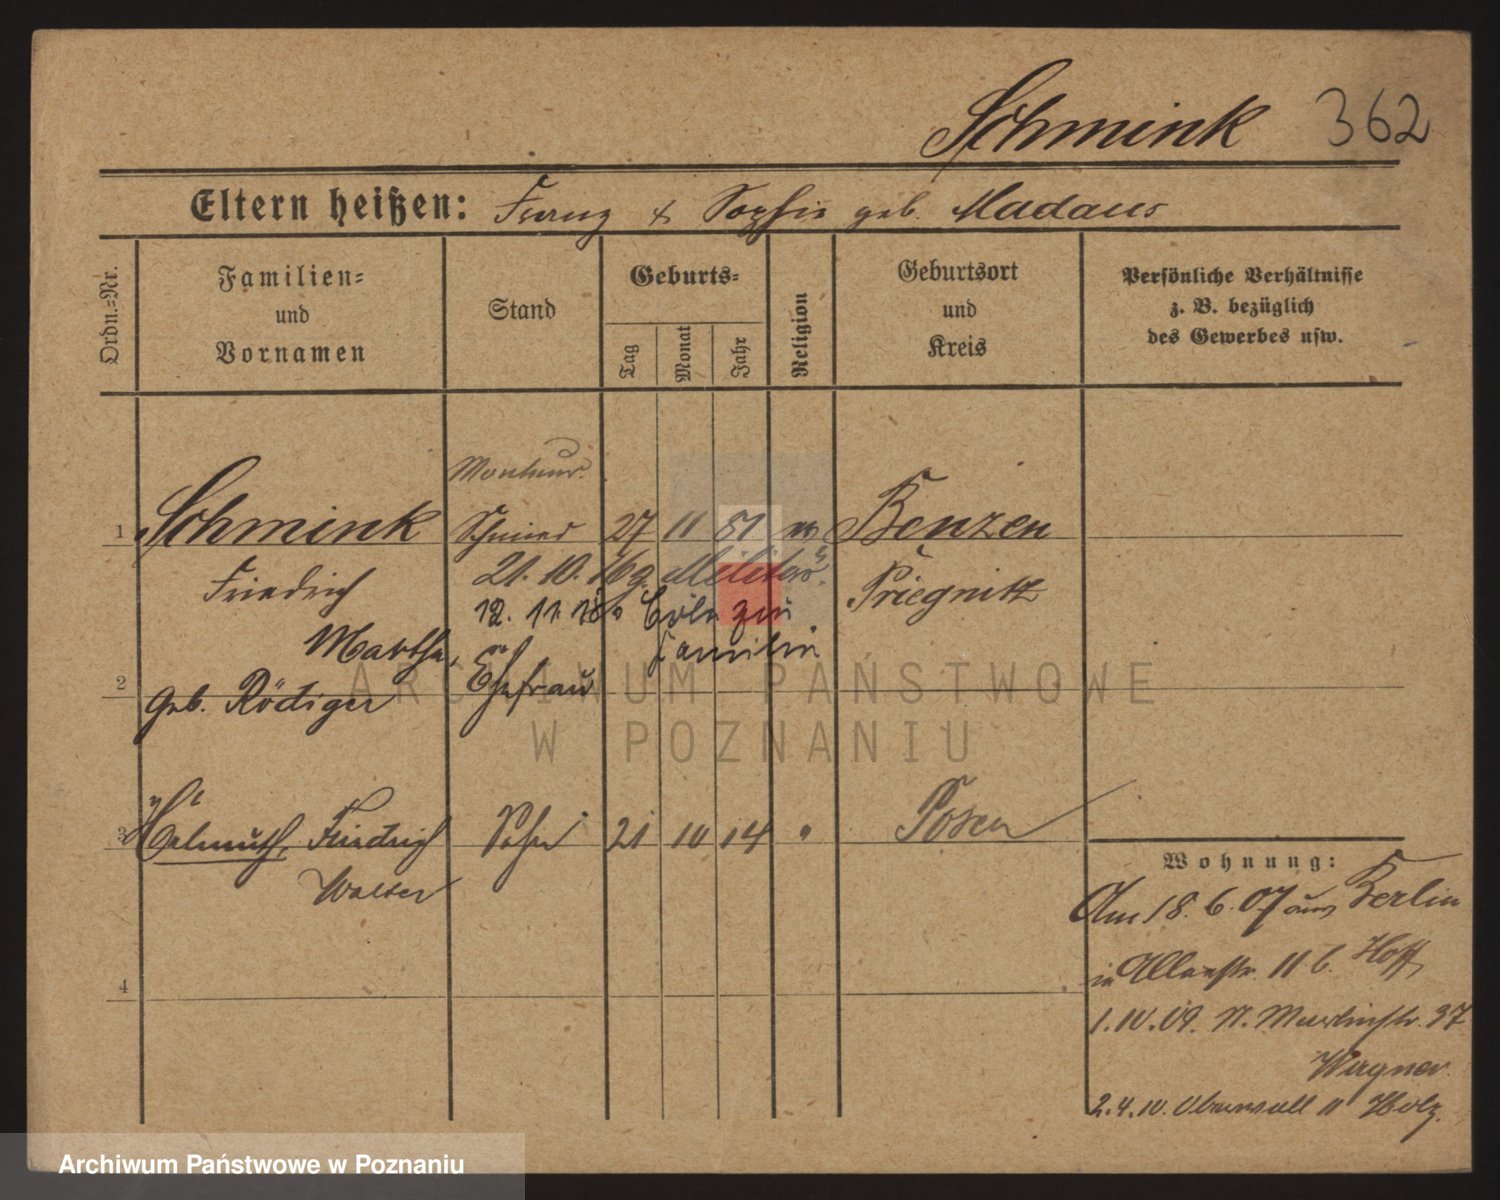 Schmink 362
Eltern heißen: Franz & Sophie geb. Madaus
Ordn.=Nr.
Familien=
und
Vornamen
Stand
Geburts=
Tag
Monat
Jahr
Religion
Geburtsort
und
Kreis
Persönliche Verhältnisse
z. B. bezüglich
des Gewerbes usw.
Monteur.
1 Schmink Schmied 27 11 81 Benzen
Friedrich 21. 10. Militär. Priegnitz
12. 11. 18 Cöln zur
Martha, Familie
2 geb. Rödiger Ehefrau
3 Helmuth, Friedrich Sohn 21 10 14 " Posen
Walter
4
Wohnung:
Am 18. 6. 07 aus Berlin
in Allerstr. 11 b. Hoff
1. 10. 09. St. Martinstr. 37
Wagner.
2. 4. 10. Oberwall 11 Holz.
ARCHIWUM PAŃSTWOWE
W POZNANIU
Archiwum Państwowe w Poznaniu